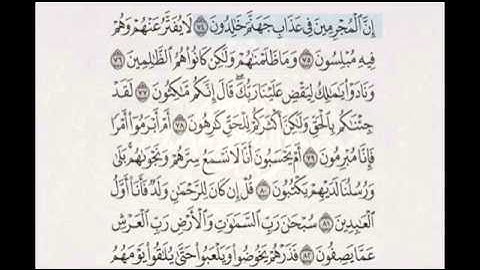 إِنَّ ٱلْمُجْرِمِينَ فِى عَذَابِ جَهَنَّمَ خَٰلِدُونَ ٧٤ لَا يُفَتَّرُ عَنْهُمْ وَهُمْ
فِيهِ مُبْلِسُونَ ٧٥ وَمَا ظَلَمْنَٰهُمْ وَلَٰكِن كَانُوا۟ هُمُ ٱلظَّٰلِمِينَ ٧٦
وَنَادَوْا۟ يَٰمَٰلِكُ لِيَقْضِ عَلَيْنَا رَبُّكَ ۖ قَالَ إِنَّكُم مَّٰكِثُونَ ٧٧ لَقَدْ
جِئْنَٰكُم بِٱلْحَقِّ وَلَٰكِنَّ أَكْثَرَكُمْ لِلْحَقِّ كَٰرِهُونَ ٧٨ أَمْ أَبْرَمُوٓا۟ أَمْرًا
فَإِنَّا مُبْرِمُونَ ٧٩ أَمْ يَحْسَبُونَ أَنَّا لَا نَسْمَعُ سِرَّهُمْ وَنَجْوَىٰهُم ۚ بَلَىٰ
وَرُسُلُنَا لَدَيْهِمْ يَكْتُبُونَ ٨٠ قُلْ إِن كَانَ لِلرَّحْمَٰنِ وَلَدٌ فَأَنَا۠ أَوَّلُ
ٱلْعَٰبِدِينَ ٨١ سُبْحَٰنَ رَبِّ ٱلسَّمَٰوَٰتِ وَٱلْأَرْضِ رَبِّ ٱلْعَرْشِ
عَمَّا يَصِفُونَ ٨٢ فَذَرْهُمْ يَخُوضُوا۟ وَيَلْعَبُوا۟ حَتَّىٰ يُلَٰقُوا۟ يَوْمَهُمُ